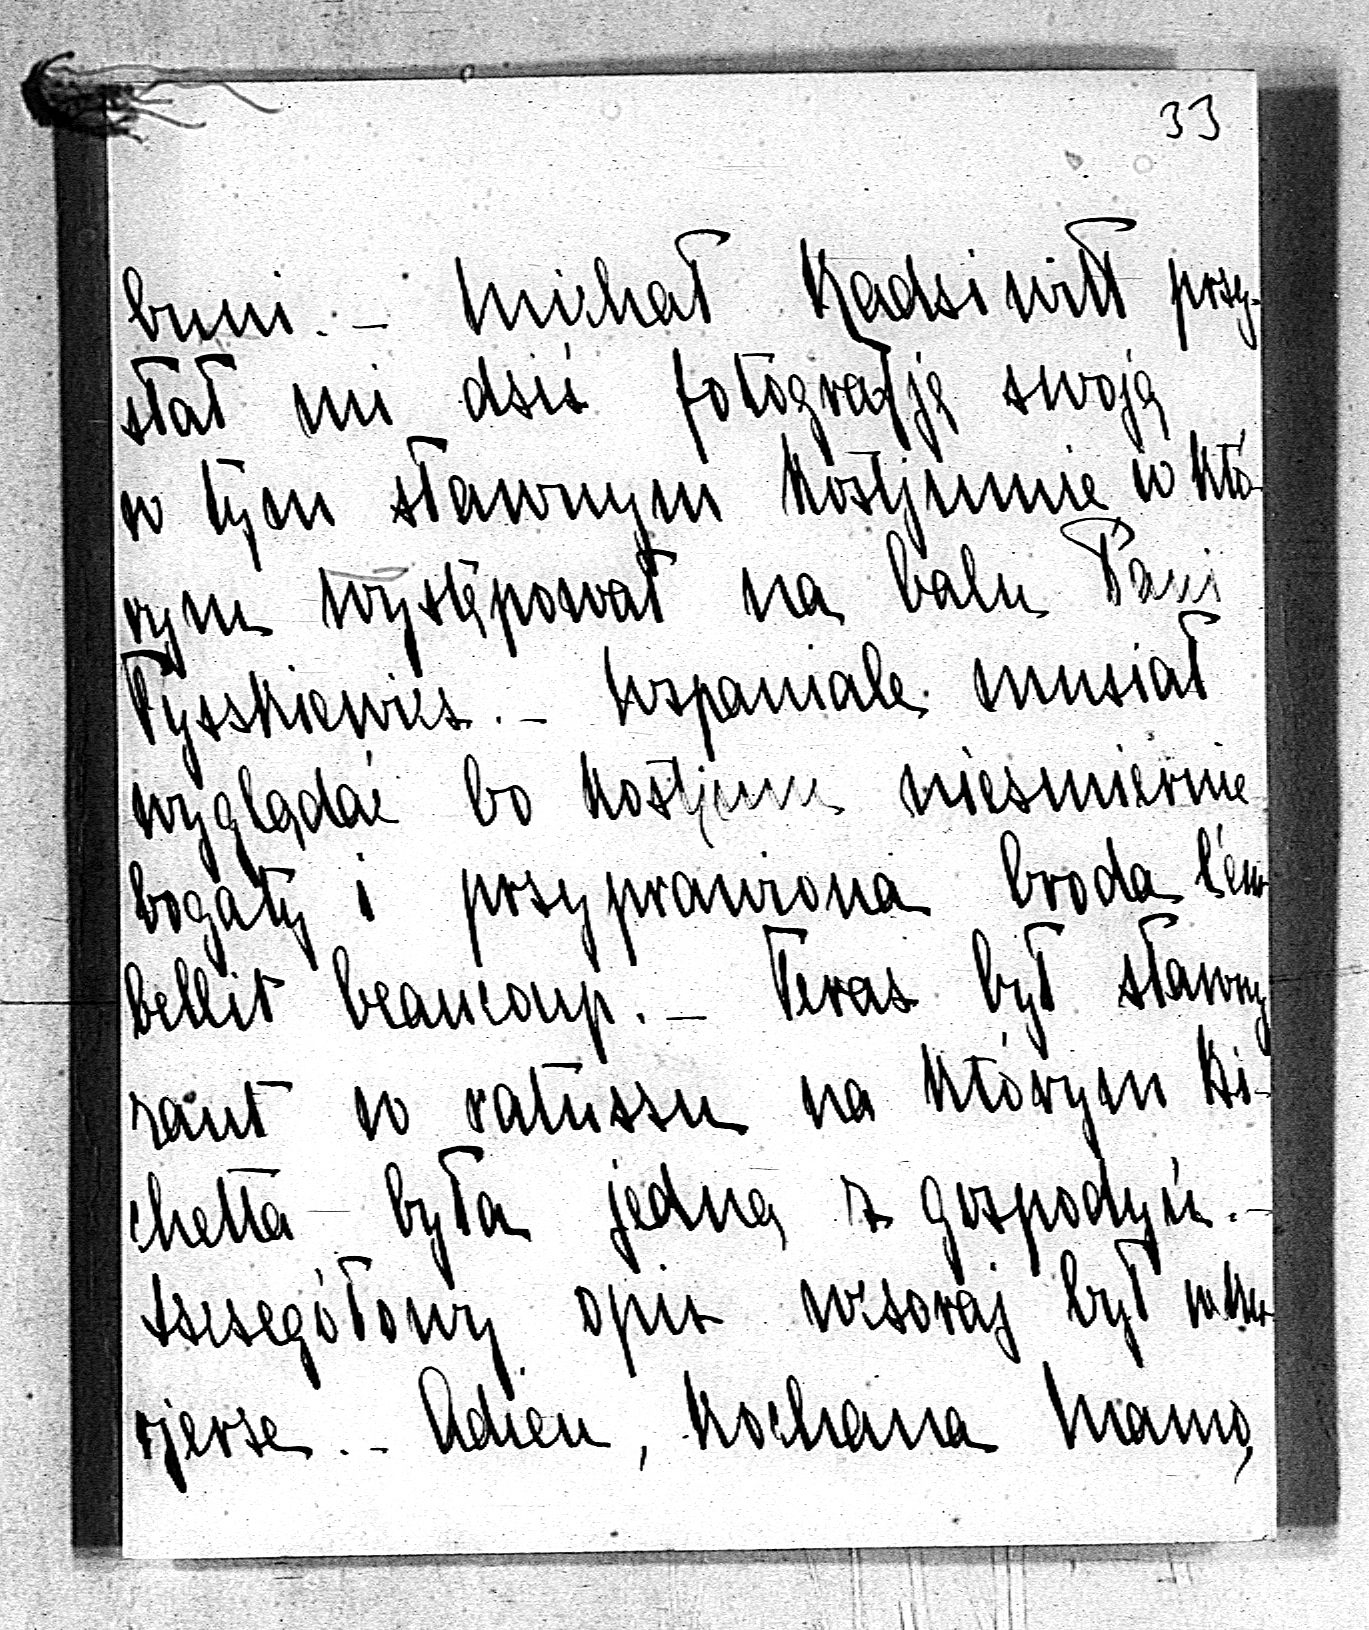 33
buni. – Michał Radziwiłł przy-
słał mi dziś fotografję swoją
w tym sławnym kostjumie w któ-
rym występował na balu Pani
Tyszkiewicz. – Wspaniale musiał
wyglądać bo kostjum niezmiernie
bogaty i przyprawiona broda l'em-
bellit beaucoup. – Teraz był sławny
raut w ratuszu na którym Bi-
chetta była jedną z gospodyń. –
Szczegółowy opis wczoraj był w Ku-
rjerze. – Adieu, Kochana Mamo,